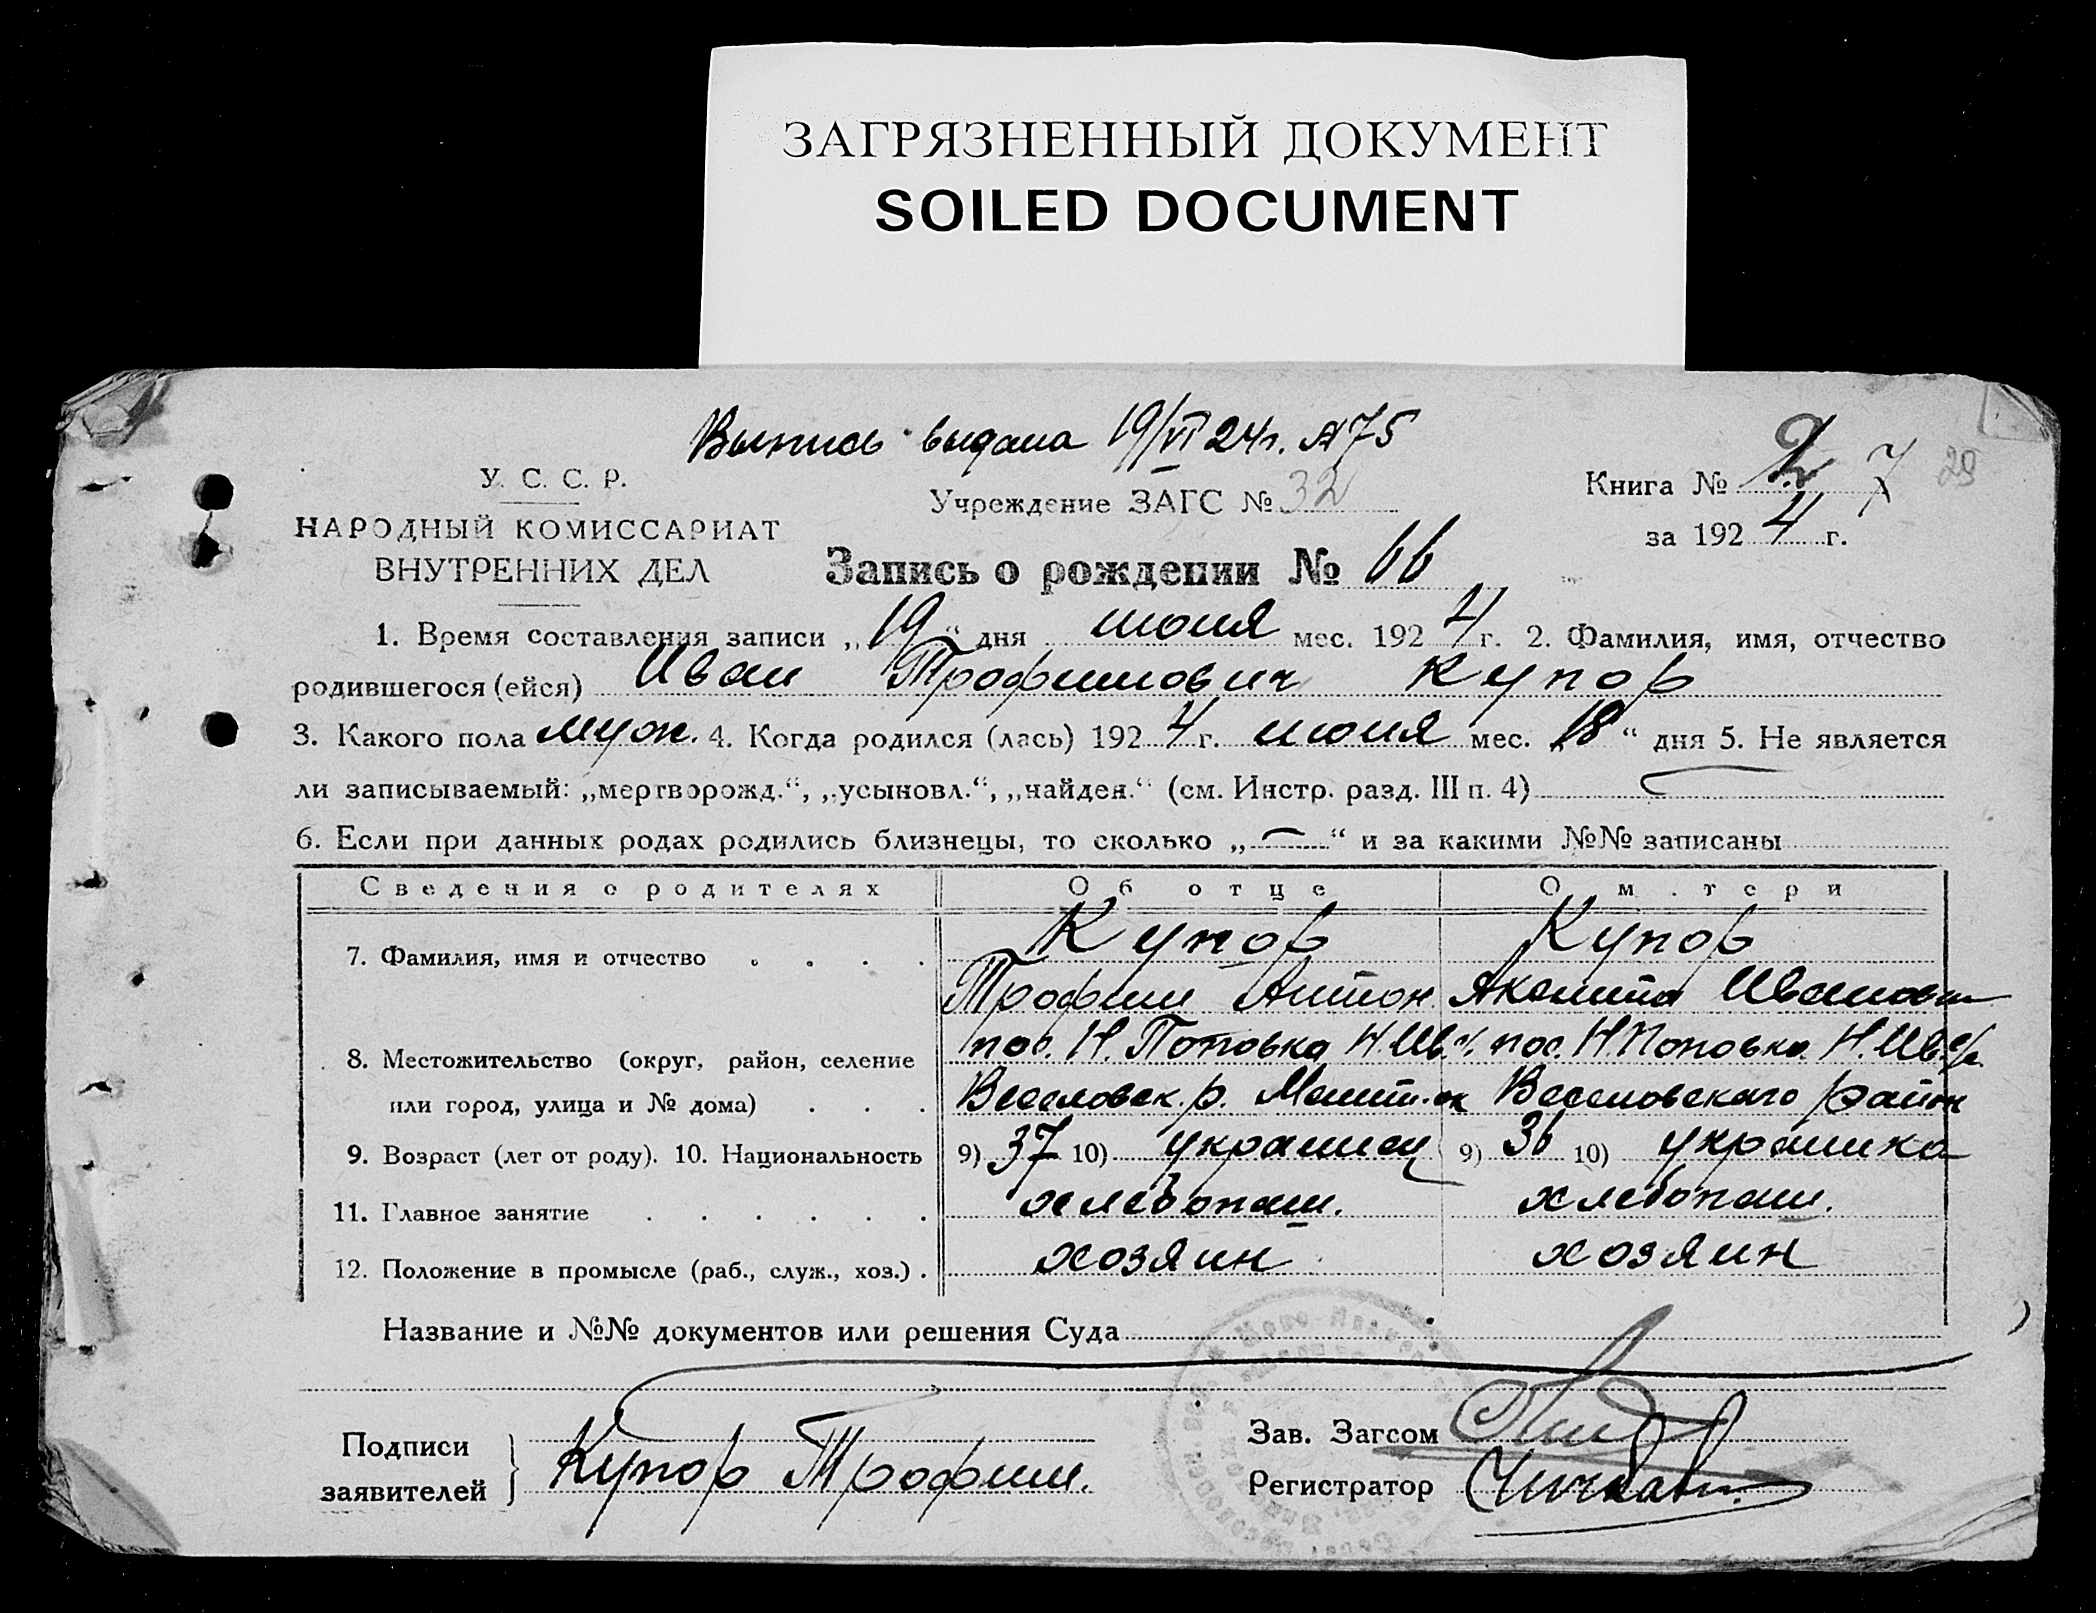 ЗАГРЯЗНЕННЫЙ ДОКУМЕНТ
SOILED DOCUMENT
Выпись выдана 19/VI 24г. №75
У. С. С. Р.
НАРОДНЫЙ КОМИССАРИАТ
ВНУТРЕННИХ ДЕЛ
Учреждение ЗАГС № 32
Книга № 2 7 29
за 1924 г.
Запись о рождении № 66
1. Время составления записи „19“ дня июня мес. 1924 г. 2. Фамилия, имя, отчество
родившегося (ейся) Иван Трофимович Купор
3. Какого пола муж. 4. Когда родился (лась) 1924 г. июня мес. 18“ дня 5. Не является
ли записываемый: „мертворожд.“, „усыновл.“, „найден.“ (см. Инстр. разд. III п. 4)
6. Если при данных родах родились близнецы, то сколько „—“ и за какими №№ записаны
Сведения о родителях Об отце О м.тери
7. Фамилия, имя и отчество . . . . Купор Купор
Трофим Антон. Акелина Ивановн
8. Местожительство (округ, район, селение пос. Н. Поповка Н. Ив. пос. Н. Поповка Н. Ив.
или город, улица и № дома) . . . Веселовск. р. Мелит. ок Веселовского район
9. Возраст (лет от роду). 10. Национальность 9) 37 10) украинец 9) 36 10) украинка
11. Главное занятие . . . . . . хлебопаш. хлебопаш.
12. Положение в промысле (раб., служ., хоз.) . хозяин хозяин
Название и №№ документов или решения Суда
Подписи
заявителей } Купор Трофим.
Зав. Загсом
Регистратор